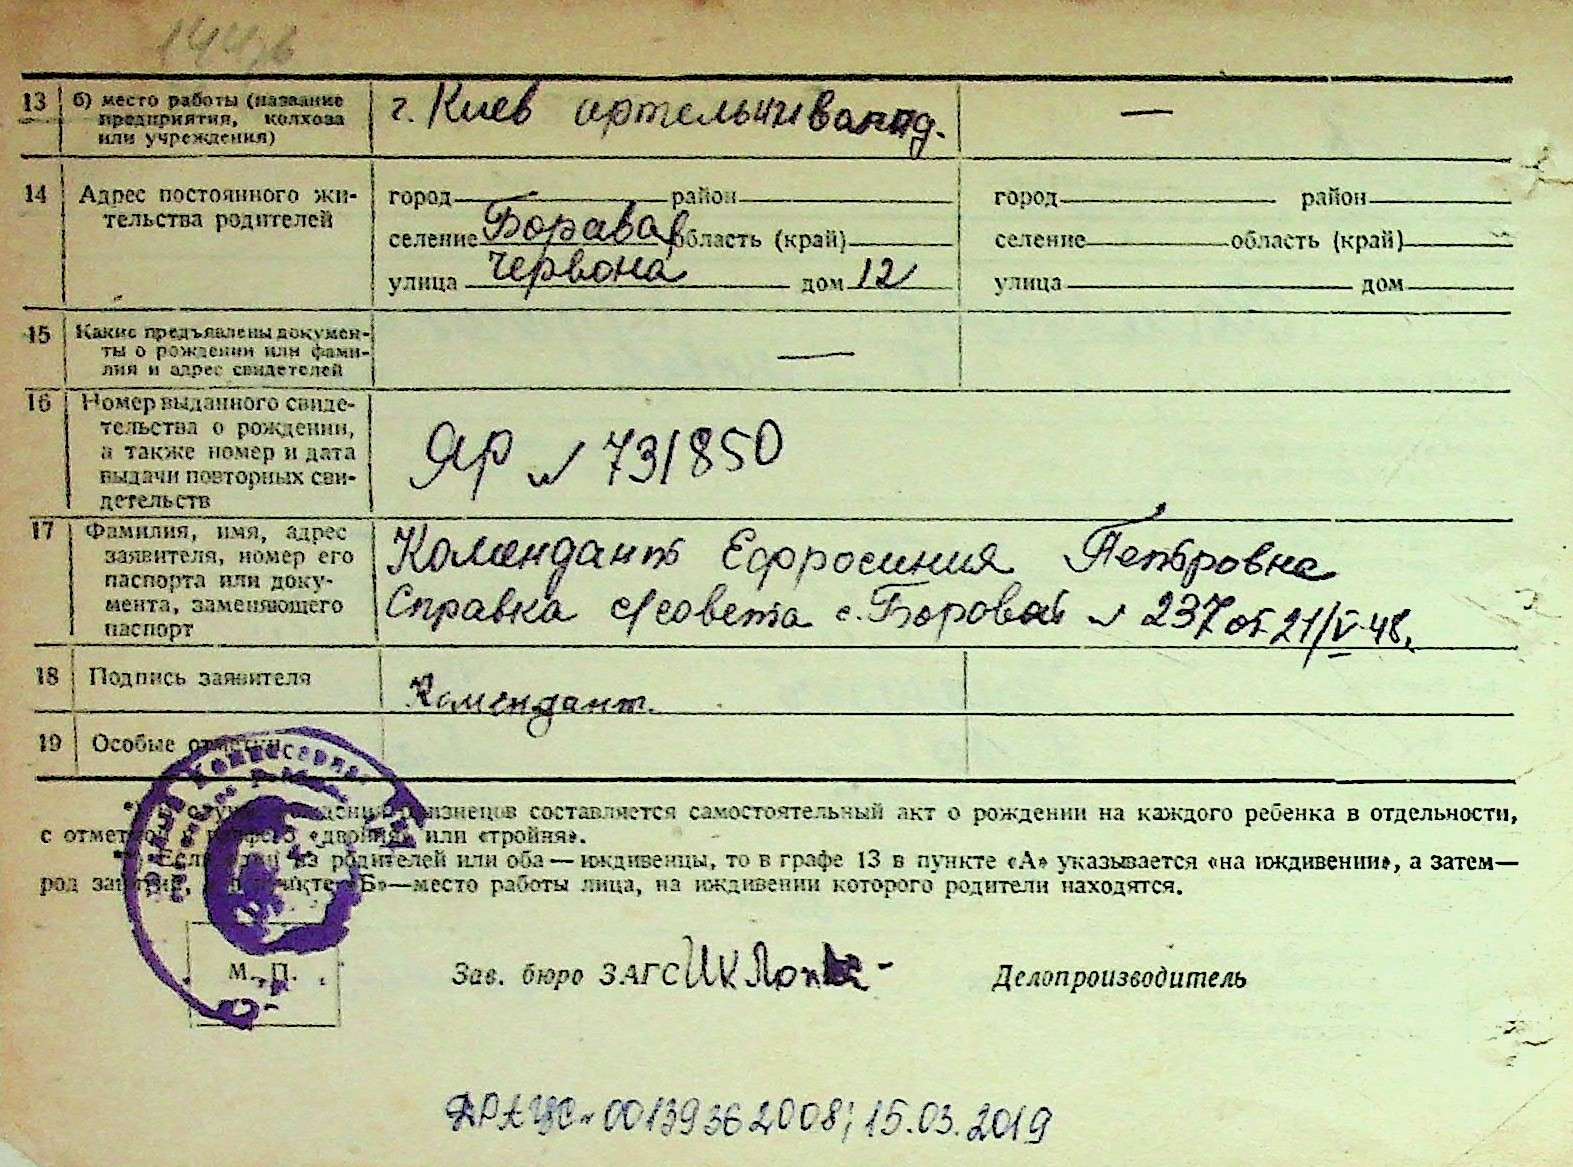 13 б) место работы (название предприятия, колхоза или учреждения) г. Киев —
14 Адрес постоянного жительства родителей
город район город район
селение Боравая область (край) селение область (край)
улица Червона дом 12 улица дом
15 Какие предъявлены документы о рождении или фамилия и адрес свидетелей —
16 Номер выданного свидетельства о рождении, а также номер и дата выдачи повторных свидетельств ЯР № 731850
17 Фамилия, имя, адрес заявителя, номер его паспорта или документа, заменяющего паспорт
Комендант Ефросиния Петровна
Справка с/совета с. Боровой № 237 от 21/V-48.
18 Подпись заявителя Комендант.
19 Особые отметки
близнецов составляется самостоятельный акт о рождении на каждого ребенка в отдельности,
с отметкой в графе 3 «двойня» или «тройня».
Если один из родителей или оба — иждивенцы, то в графе 13 в пункте «А» указывается «на иждивении», а затем—
род занятий, в пункте «Б»—место работы лица, на иждивении которого родители находятся.
М. П. Зав. бюро ЗАГС Делопроизводитель
ДРАЦС № 00139362008; 15.03.2019